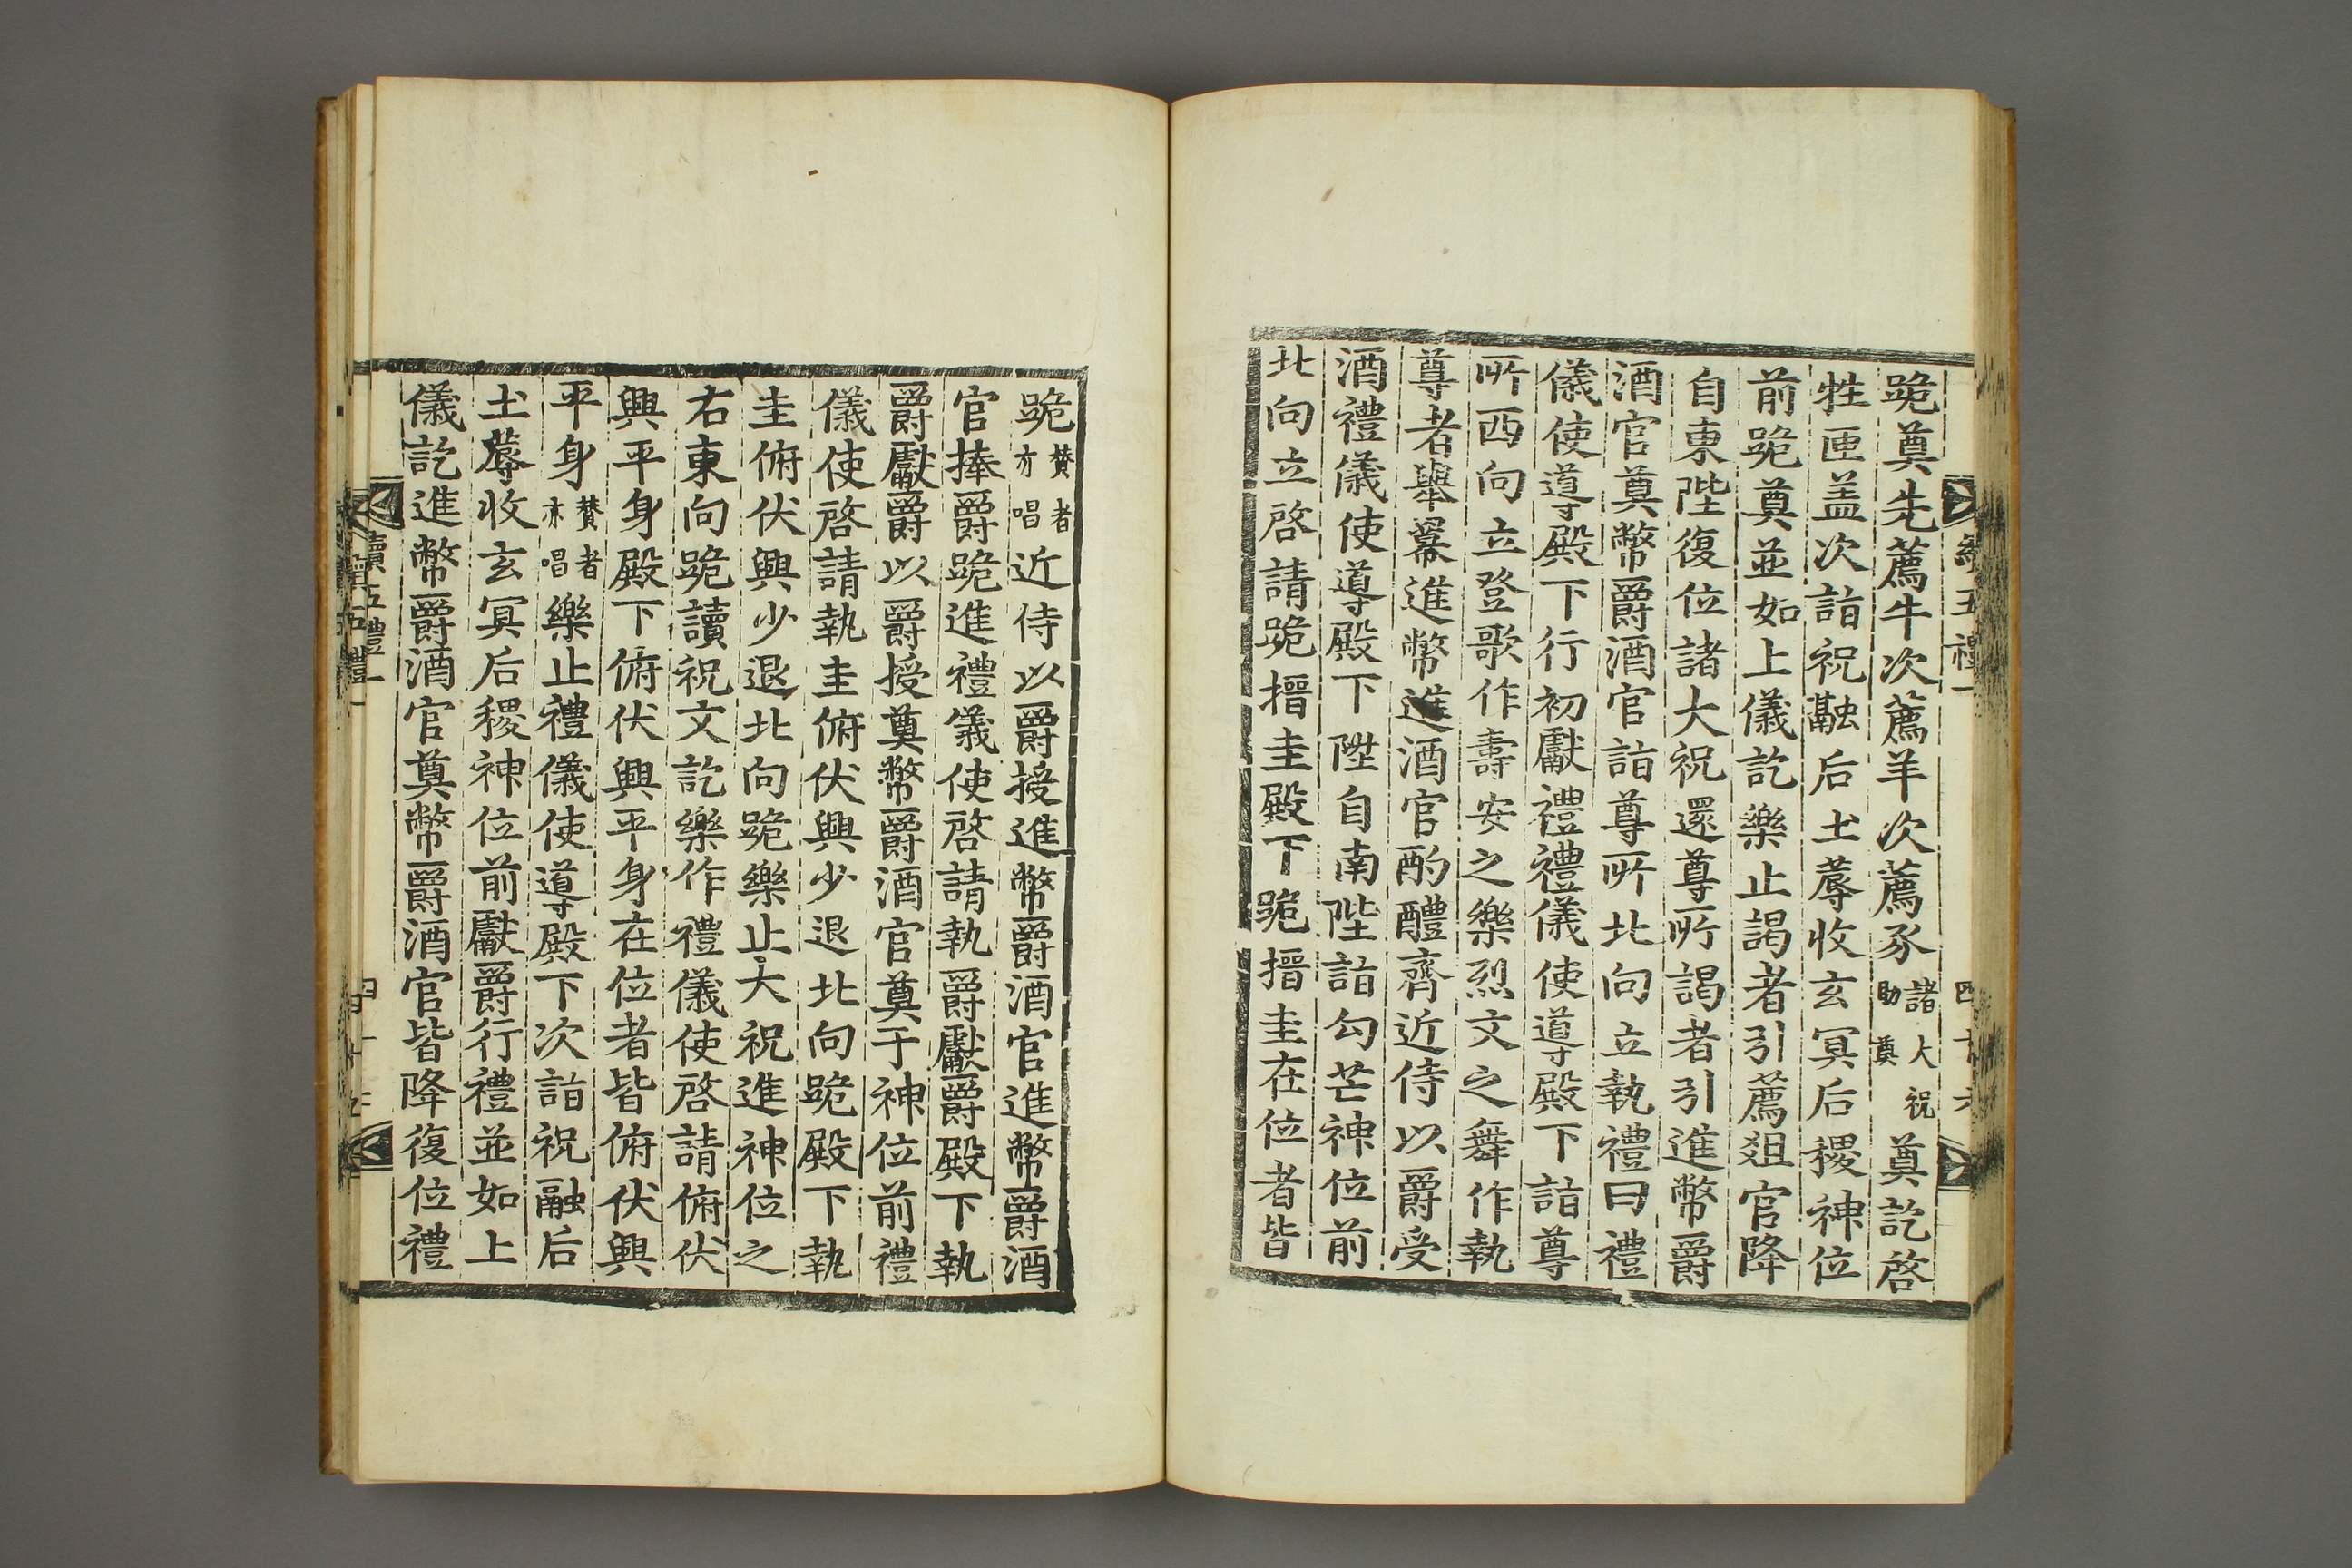 跪奠先薦牛次薦羊次薦豕諸大祝助奠奠訖啓
牲匣盖次詣祝融后土蓐收玄冥后稷神位
前跪奠並如上儀訖樂止謁者引薦俎官降
自東陛復位諸大祝還尊所謁者引進幣爵
酒官奠幣爵酒官詣尊所北向立執禮曰禮
儀使導殿下行初獻禮禮儀使導殿下詣尊
所西向立登歌作壽安之樂烈文之舞作執
尊者舉羃進幣進酒官酌醴齊近侍以爵受
酒禮儀使導殿下陞自南陛詣勾芒神位前
北向立啓請跪搢圭殿下跪搢圭在位者皆
跪賛者亦唱近侍以爵授進幣爵酒官進幣爵酒
官捧爵跪進禮儀使啓請執爵獻爵殿下執
爵獻爵以爵授奠幣爵酒官奠于神位前禮
儀使啓請執圭俯伏興少退北向跪殿下執
圭俯伏興少退北向跪樂止大祝進神位之
右東向跪讀祝文訖樂作禮儀使啓請俯伏
興平身殿下俯伏興平身在位者皆俯伏興
平身賛者亦唱樂止禮儀使導殿下次詣祝融后
土蓐收玄冥后稷神位前獻爵行禮並如上
儀訖進幣爵酒官奠幣爵酒官皆降復位禮